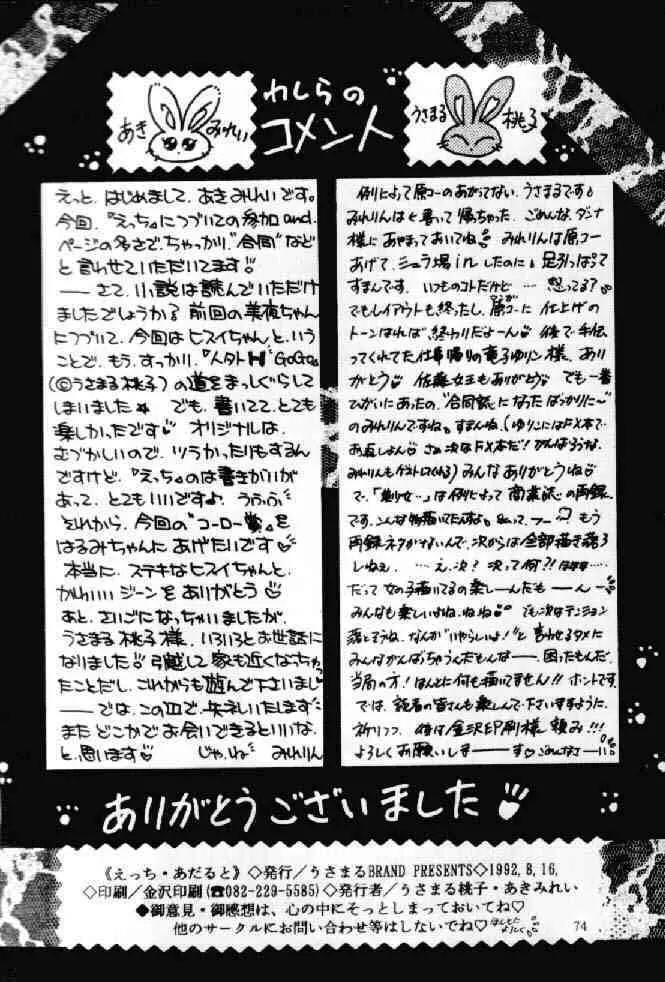 わしらの
コメント
あき みれい
うさまる 桃子
えっと、はじめまして、あきみれいです。
今回、『えっち』につづいての参加and.
ページの多さで、ちゃっかり、"合同"など
と言わせていただいてます!!
——さて、小説は読んでいただけ
ましたでしょうか?前回の美夜ちゃん
につづいて、今回はヒスイちゃん、という
ことで、もう、すっかり、
(©うさまる桃子)の道をまっしぐらして
しまいました★ でも、書いてて、とても
楽しかったです♡ オリジナルは、
むづかしいので、ツラかったりもするん
ですけど、『えっち』のは書きがいが
あって、とてもいいです♪ うふふ
それから、今回の"コーロー賞"を
はるみちゃんに あげたいです
本当に、ステキなヒスイちゃんと、
かわいい ジーンを ありがとう♡
あと、さいごになっちゃいましたが、
うさまる桃子様、いろいろとお世話に
なりました 引越して家も近くなっちゃっ
たことだし、これからも遊んで下さいまし
——では、この辺で、失礼いたします
また どこかで お会いできるといいな、
と、思います♡ じゃ、ね みれりん
例によって原コーのあがってない、うさまるです
みれりんは 帰っちゃった、ごめんな、ダンナ
様にあやまっておいてね みれりんは原コー
あげて、シュラ場inしたのに 足引っぱって
すまんです、いつものコトだけど … 怒ってる?
でもレイアウトも終ったし、原コーに 仕上げの
トーンはれば、終わりだよーん 後で手伝
ってくれてた仕事帰りの竜子ゆリン様、あり
がとう 佐藤女王もありがとう でも一番
の みれりんですね。すまんね、(
みれりんもゲスト )みんなありがとうね
で、 は例によって 商業誌の再録
です、こんな物描いてたんすよ もう
再録ネタがないんで、次からは全部描き下ろ
しねぇ、 …え、次? 次って何?!
だって 女の子描いてるの楽しーんだもーんー
みんなも楽しいよね、ねね でも次はテンション
落とそうね、なんか"いやらしいよ!"と言わせるタメに
みんながんばっちゃうんだもんなー 困ったもんだ、
当局の方!ほんとに何も描いてません!!ホントです
では、読者の皆さんも楽しんで下さいますように、
祈りつつ、 後は金沢印刷様 頼み!!!
よろしくお願いしまーーす♡ ごめんなさーい
ありがとうございました
《えっち・あだると》◇発行/うさまるBRAND PRESENTS◇1992,8,16,
◇印刷/金沢印刷(☎082-229-5585)◇発行者/うさまる桃子・あきみれい
●御意見・御感想は、心の中にそっとしまっておいてね♡
他のサークルにお問い合わせ等はしないでね♡
74